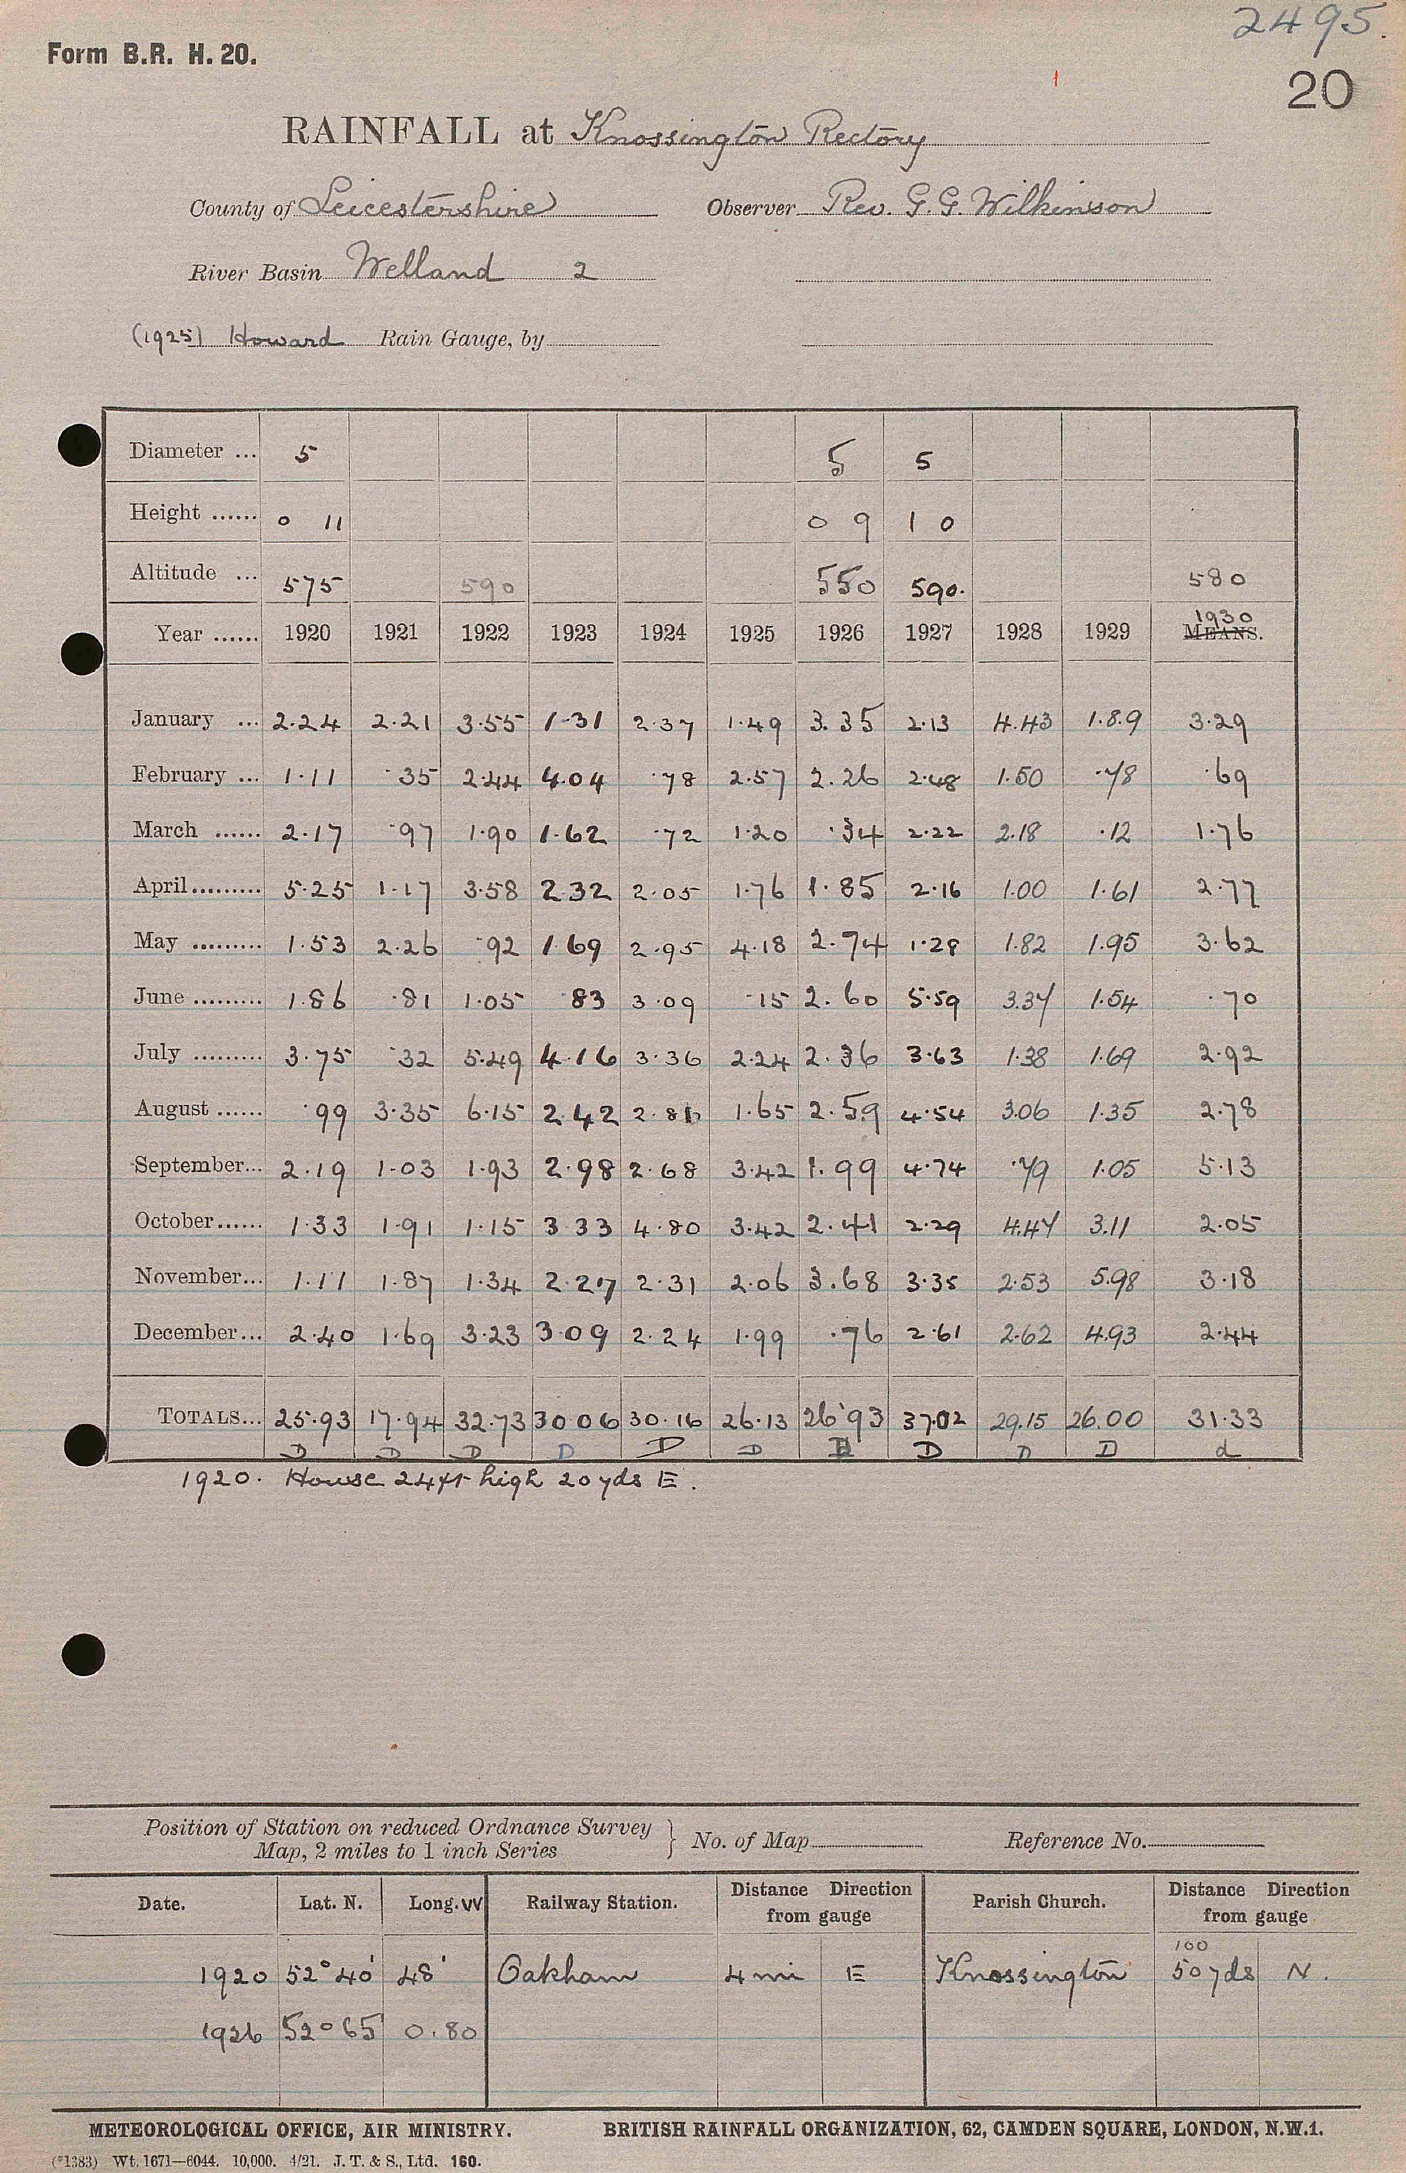 2495.
Form B.R. H. 20.
20
RAINFALL at Knossington Rectory
County of Leicestershire Observer Rev. G. G. Wilkinson
River Basin Welland 2
(1925) Howard Rain Gauge, by
Diameter ... 5 5 5
Height ...... 0 11 0 9 1 0
Altitude ... 575 590 550 590. 580
1930
Year ...... 1920 1921 1922 1923 1924 1925 1926 1927 1928 1929 MEANS.
January ... 2.24 2.21 3.55 1.31 2.37 1.49 3.35 2.13 4.43 1.89 3.29
February ... 1.11 .35 2.44 4.04 .78 2.57 2.26 2.48 1.50 .78 .69
March ...... 2.17 .97 1.90 1.62 .72 1.20 .34 2.22 2.18 .12 1.76
April......... 5.25 1.17 3.58 2.32 2.05 1.76 1.85 2.16 1.00 1.61 2.77
May ......... 1.53 2.26 .92 1.69 2.95 4.18 2.74 1.28 1.82 1.95 3.62
June ......... 1.86 .81 1.05 .83 3.09 .15 2.60 5.59 3.37 1.54 .70
July ......... 3.75 .32 5.49 4.16 3.36 2.24 2.36 3.63 1.38 1.69 2.92
August ...... .99 3.35 6.15 2.42 2.81 1.65 2.59 4.54 3.06 1.35 2.78
September... 2.19 1.03 1.93 2.98 2.68 3.42 1.99 4.74 .79 1.05 5.13
October...... 1.33 1.91 1.15 3.33 4.80 3.42 2.41 2.29 4.47 3.11 2.05
November... 1.11 1.87 1.34 2.27 2.31 2.06 3.68 3.35 2.53 5.98 3.18
December... 2.40 1.69 3.23 3.09 2.24 1.99 .76 2.61 2.62 4.93 2.44
TOTALS... 25.93 17.94 32.73 30 06 30.16 26.13 26.93 37.02 29.15 26.00 31.33
D D D D D D D D D d
1920. House 24ft high 20yds E.
Position of Station on reduced Ordnance Survey
Map, 2 miles to 1 inch Series } No. of Map Reference No.
Date. Lat. N. Long. W Railway Station. Distance Direction from gauge Parish Church. Distance Direction from gauge
100
1920 52° 40' 48' Oakham 4 mi E Knossington 50 yds N.
1926 52° 65' 0.80
METEOROLOGICAL OFFICE, AIR MINISTRY. BRITISH RAINFALL ORGANIZATION, 62, CAMDEN SQUARE, LONDON, N.W.1.
(*1383) Wt. 1671—6044. 10,000. 4/21. J. T. & S., Ltd. 160.